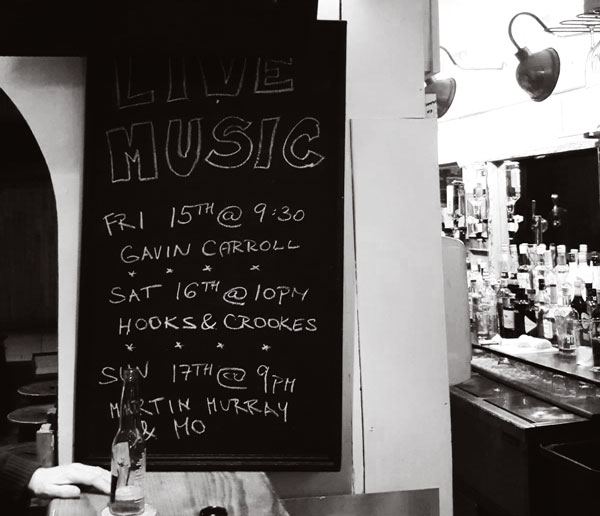 LIVE
MUSIC
FRI 15TH @ 9:30
GAVIN CARROLL
* * * *
SAT 16TH @ 10PM
HOOKS & CROOKES
* * * *
SUN 17TH @ 9PM
MARTIN MURRAY
& MO